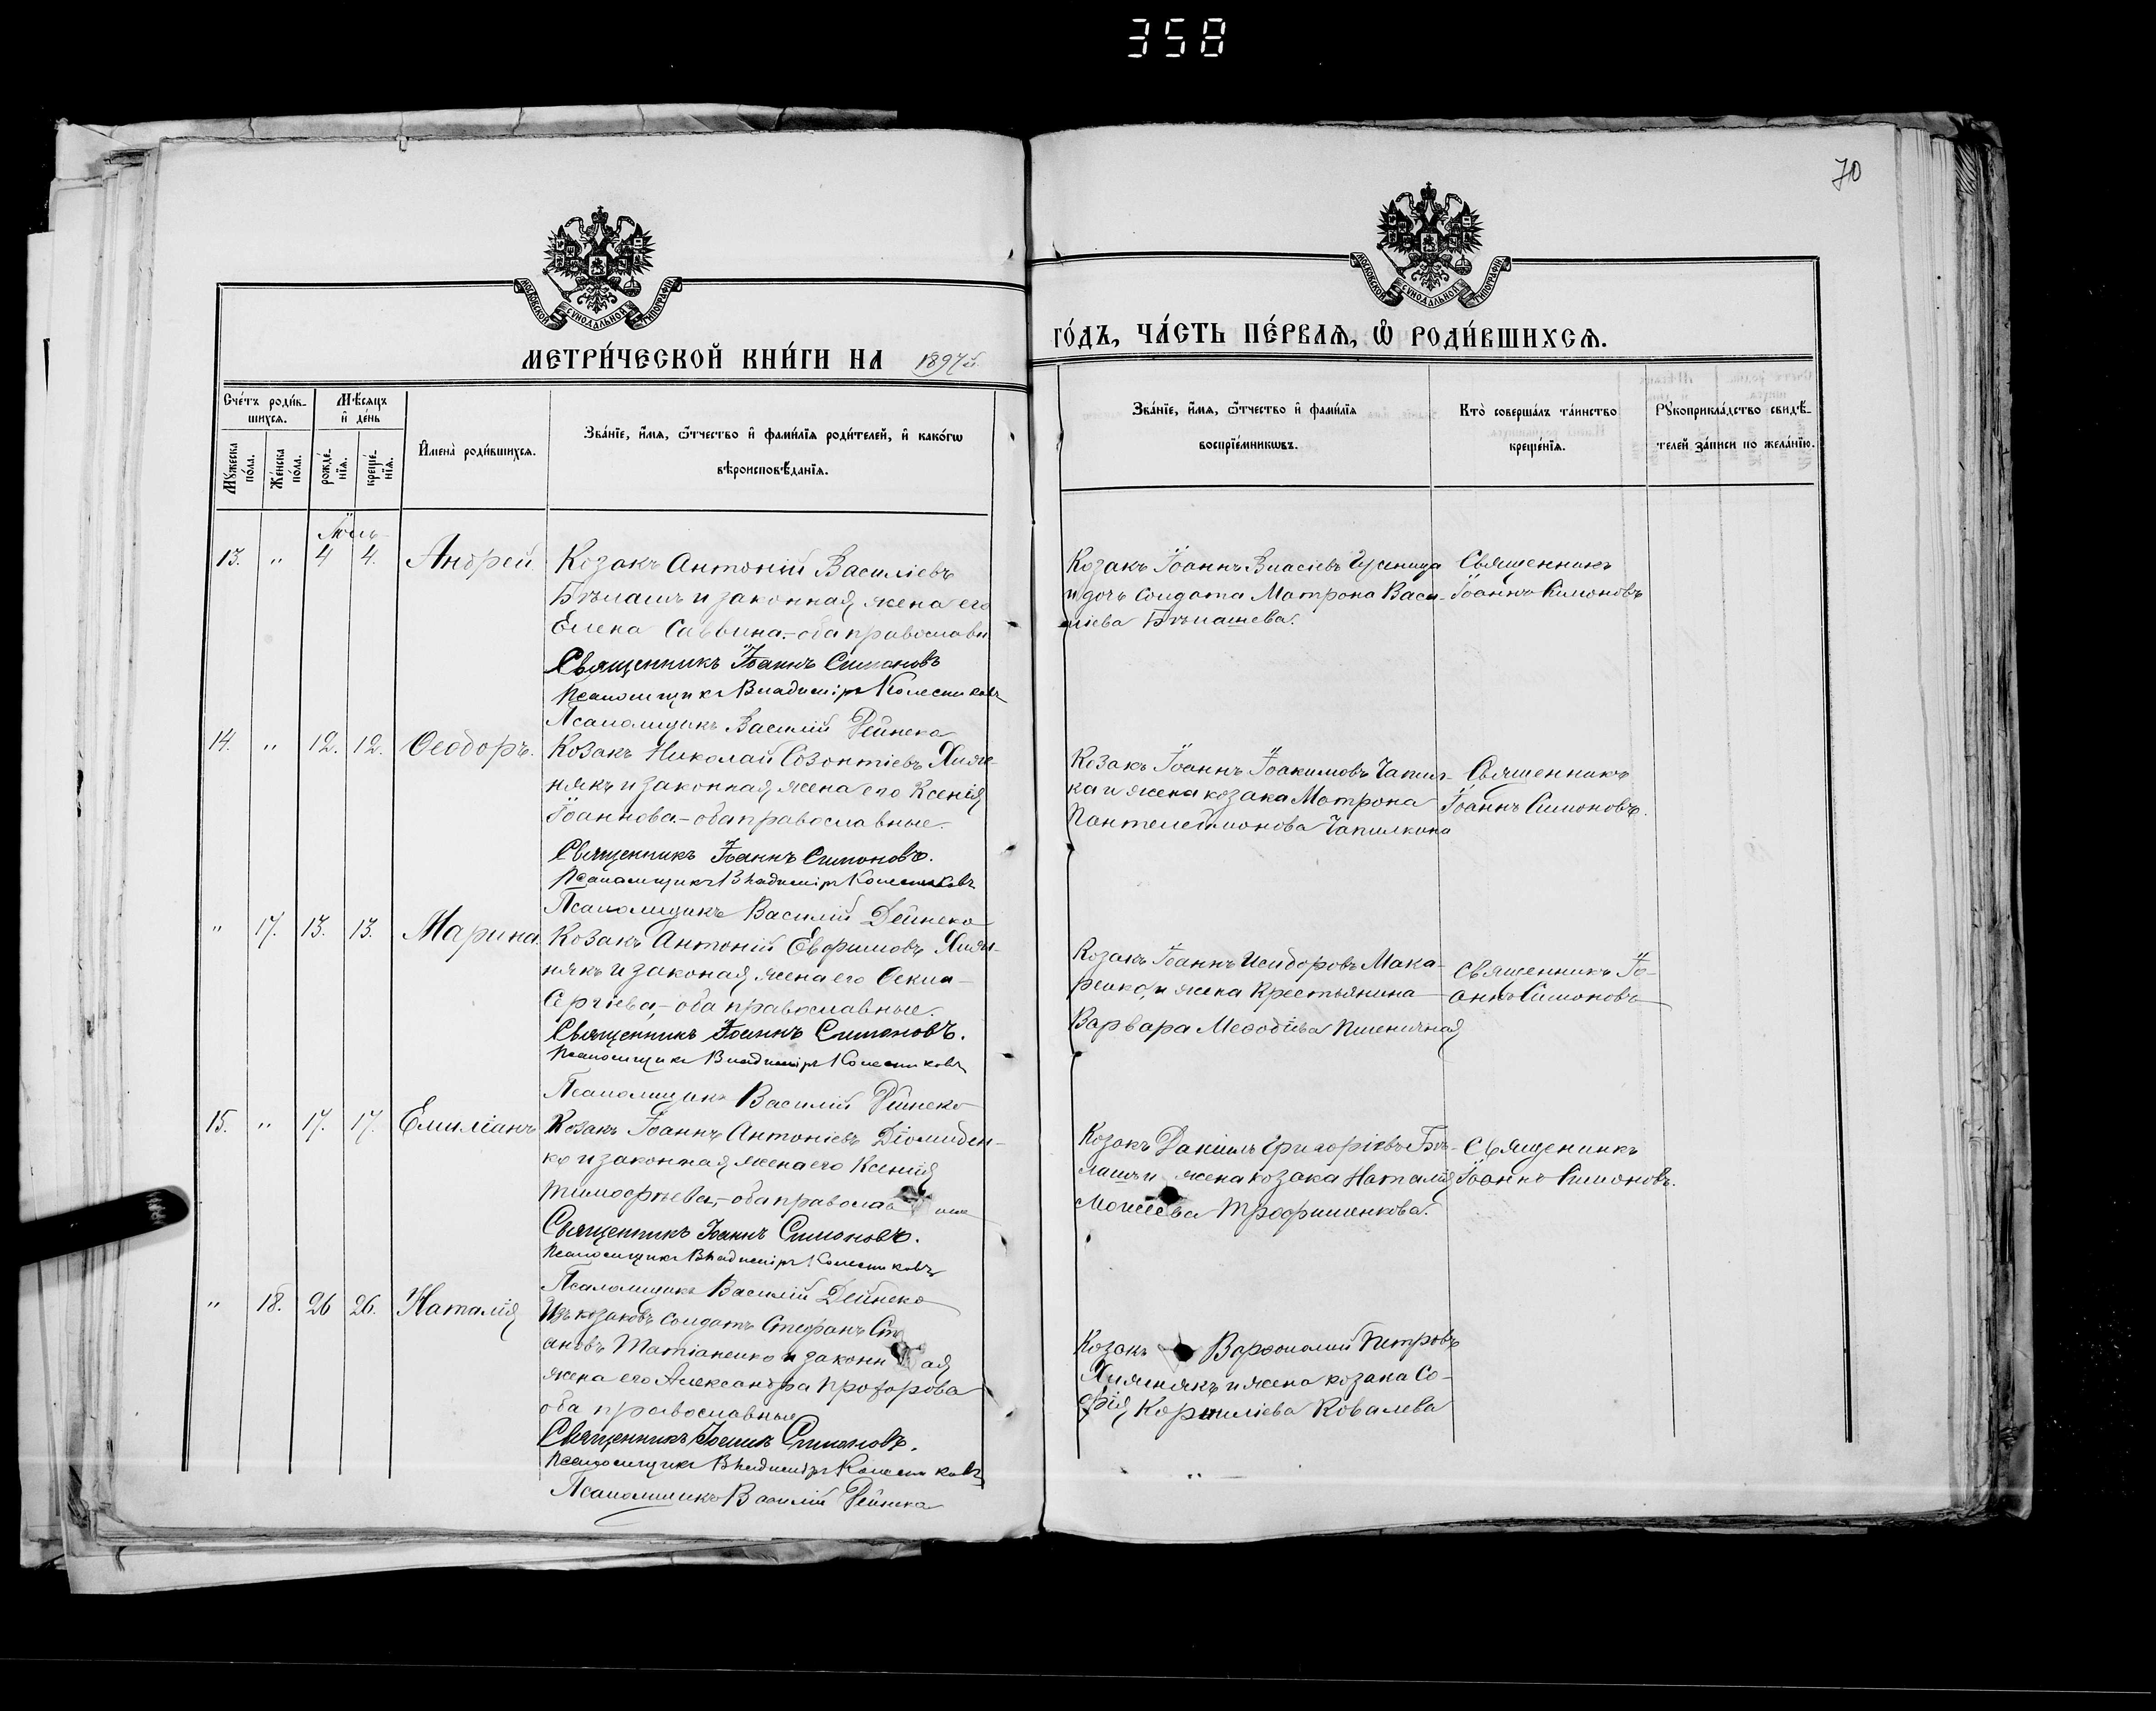 358
70
МОСКОВСКОЙ СѴНОДАЛЬНОЙ ТИПОГРАФІИ
МОСКОВСКОЙ СѴНОДАЛЬНОЙ ТИПОГРАФІИ
МЕТРИ́ЧЕСКОЙ КНИ́ГИ НА 1897й
ГО́ДЪ, ЧА́СТЬ ПЕ́РВАѦ, Ѽ РОДИ́ВШИХСѦ.
Сче́тъ роди́в-
шихсѧ.
Мѣ́сѧцъ
и҆ де́нь
Мꙋ́жеска
по́ла.
Же́нска
по́ла.
рожде́-
нїѧ.
креще́-
нїѧ.
И҆мена̀ роди́вшихсѧ.
Зва́нїе, и҆́мѧ, ѻ҆́тчество и҆ фами́лїѧ роди́телей, и҆ како́гѡ
вѣроисповѣ́данїѧ.
Зва́нїе, и҆́мѧ, ѻ҆́тчество и҆ фами́лїѧ
воспрїе́мникѡвъ.
Кто̀ соверша́лъ та́инство
креще́нїѧ.
Рꙋкоприкла́дство свидѣ́-
телей за́писи по жела́нїю.
Іюль
13. " 4 4. Андрей.
Козакъ Антоній Василіевъ
Бѣлашъ и законная жена его
Елена Саввина.- оба православн
Священникъ Іоаннъ Симоновъ
Псаломщикъ Владиміръ Колесниковъ
Псаломщикъ Василій Дейнека
Козакъ Іоаннъ Власіевъ
и дочь солдата Матрона Васи-
ліева Бѣлашева.
Священникъ
Іоаннъ Симоновъ
14. " 12. 12. Ѳеодоръ.
Козакъ Николай Созонтіевъ Хиж-
някъ и законная жена его Ксенія
Іоаннова.- оба православные.
Священникъ Іоаннъ Симоновъ.
Псаломщикъ Владиміръ Колесниковъ
Псаломщикъ Василій Дейнека
Козакъ Іоаннъ Іоакимовъ Чапил-
ка и жена козака Матрона
Пантелеймонова Чапилкона
Священникъ
Іоаннъ Симоновъ.
" 17. 13. 13. Марина.
Козакъ Антоній Евфимовъ Хиж-
някъ и законая жена его Ѳекла
Сергіева,- оба православные.
Священникъ Іоаннъ Симоновъ.
Псаломщикъ Владиміръ Колесниковъ
Псаломщикъ Василій Дейнека
Козакъ Іоаннъ Исидоровъ Мака-
ренко, и жена крестьянина
Варвара Меѳодіева Пшеничная
Священникъ Іо-
аннъ Симоновъ
15. " 17. 17. Емиліанъ
Козакъ Іоаннъ Антоніевъ Діомиден-
ко и законная жена его Ксенія
Тимофѣева,- оба православ ные
Священникъ Іоаннъ Симоновъ.
Псаломщикъ Владиміръ Колесниковъ
Псаломщикъ Василій Дейнека
Козакъ Даніилъ Григоріевъ Бѣ-
лашъ и жена козака Наталія
Моисеева Трофименкова.
Священникъ
Іоаннъ Симоновъ.
" 18. 26 26. Наталія
Изъ козаковъ солдатъ Стефанъ
ановъ Матіаненко и законн ая
жена его Александра Прохорова
оба православные
Священникъ Іоаннъ Симоновъ.
Псаломщикъ Владиміръ Колесниковъ
Псаломщикъ Василій Дейнека
Козакъ Варѳоломей Петровъ
Хижнякъ и жена козака Со-
фія Корниліева Ковалева